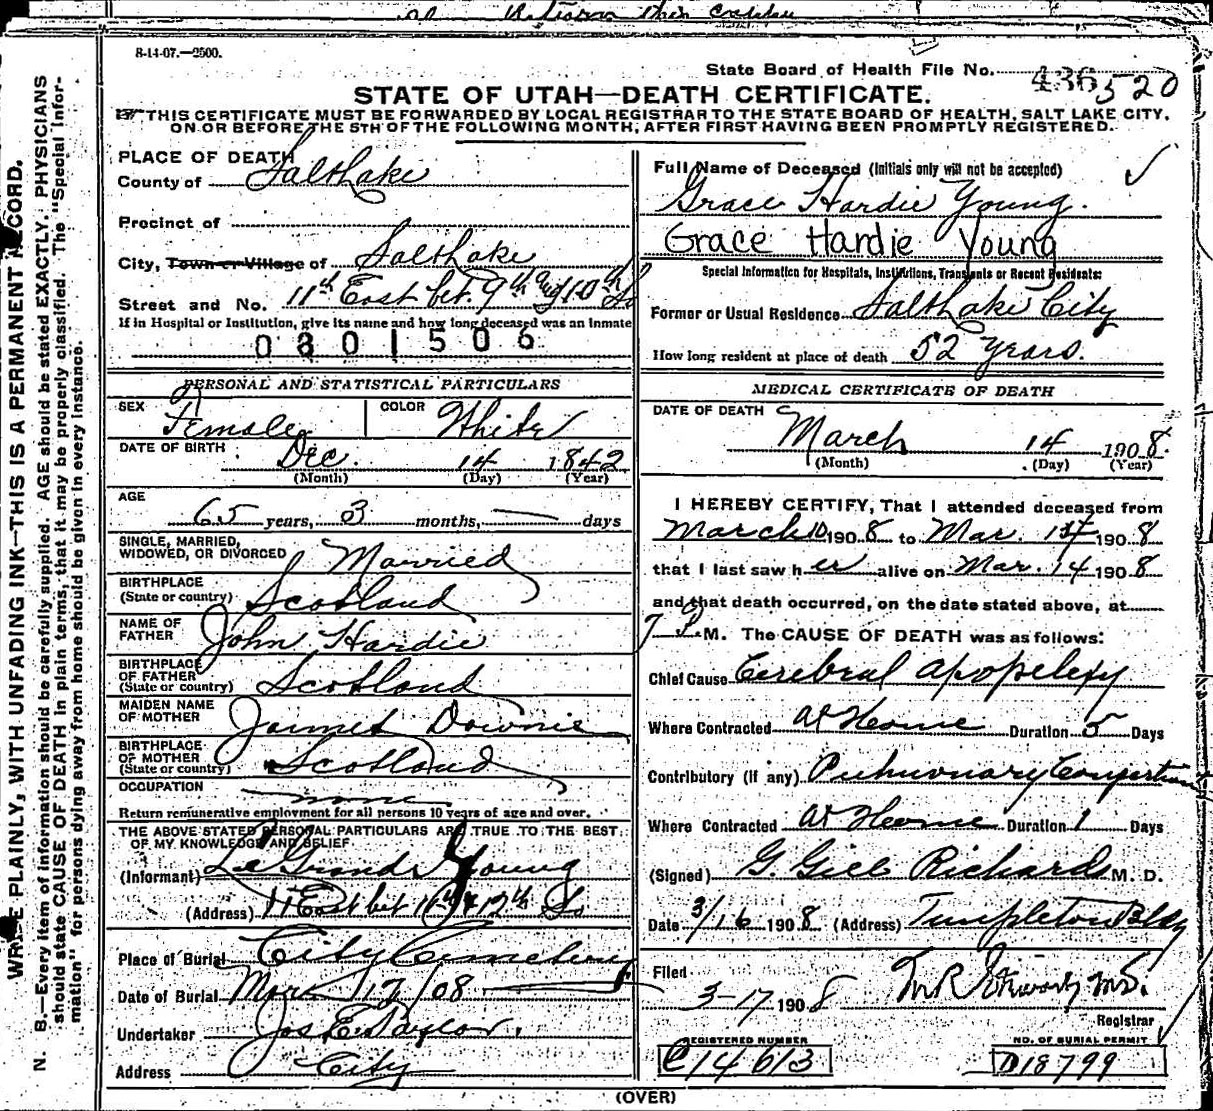 8-14-07.—2500.
State Board of Health File No. 436 520
STATE OF UTAH—DEATH CERTIFICATE.
THIS CERTIFICATE MUST BE FORWARDED BY LOCAL REGISTRAR TO THE STATE BOARD OF HEALTH, SALT LAKE CITY,
ON OR BEFORE THE 5TH OF THE FOLLOWING MONTH, AFTER FIRST HAVING BEEN PROMPTLY REGISTERED.
WRITE PLAINLY, WITH UNFADING INK—THIS IS A PERMANENT RECORD.
N. B.—Every item of information should be carefully supplied. AGE should be stated EXACTLY. PHYSICIANS
should state CAUSE OF DEATH in plain terms, that it may be properly classified. The "Special Infor-
mation" for persons dying away from home should be given in every instance.
PLACE OF DEATH
County of Salt Lake
Precinct of
City, Town or Village of Salt Lake
Street and No. 11th East bet. 9th and 10th So
If in Hospital or Institution, give its name and how long deceased was an inmate
0801506
PERSONAL AND STATISTICAL PARTICULARS
SEX Female COLOR White
DATE OF BIRTH Dec. 14 1842
(Month) (Day) (Year)
AGE
65 years, 3 months, — days
SINGLE, MARRIED,
WIDOWED, OR DIVORCED Married
BIRTHPLACE
(State or country) Scotland
NAME OF
FATHER John Hardie
BIRTHPLACE
OF FATHER
(State or country) Scotland
MAIDEN NAME
OF MOTHER Downie
BIRTHPLACE
OF MOTHER
(State or country) Scotland
OCCUPATION none
Return remunerative employment for all persons 10 years of age and over.
THE ABOVE STATED PERSONAL PARTICULARS ARE TRUE TO THE BEST
OF MY KNOWLEDGE AND BELIEF.
(Informant) Le Grande Young
(Address) 11 East bet 12th So
Place of Burial City Cemetery
Date of Burial Mar 17/08
Undertaker Jos E Taylor.
Address City
Full Name of Deceased (Initials only will not be accepted)
Grace Hardie Young.
Grace Hardie Young
Special Information for Hospitals, Institutions, Transients or Recent Residents:
Former or Usual Residence Salt Lake City
How long resident at place of death 52 years.
MEDICAL CERTIFICATE OF DEATH
DATE OF DEATH March 14 1908.
(Month) (Day) (Year)
I HEREBY CERTIFY, That I attended deceased from
March 10 1908 to Mar. 14 1908
that I last saw her alive on Mar. 14 1908
and that death occurred, on the date stated above, at
7 P.M. The CAUSE OF DEATH was as follows:
Chief Cause Cerebral apoplexy
Where Contracted At Home Duration 5 Days
Contributory (if any) Pulmonary Congestion
Where Contracted At Home Duration 1 Days
(Signed) G. Gill Richards M. D.
Date 3/16 1908 (Address) Templeton Bldg
Filed
3-17 1908
Registrar
REGISTERED NUMBER NO. OF BURIAL PERMIT
C14613 D18799
(OVER)